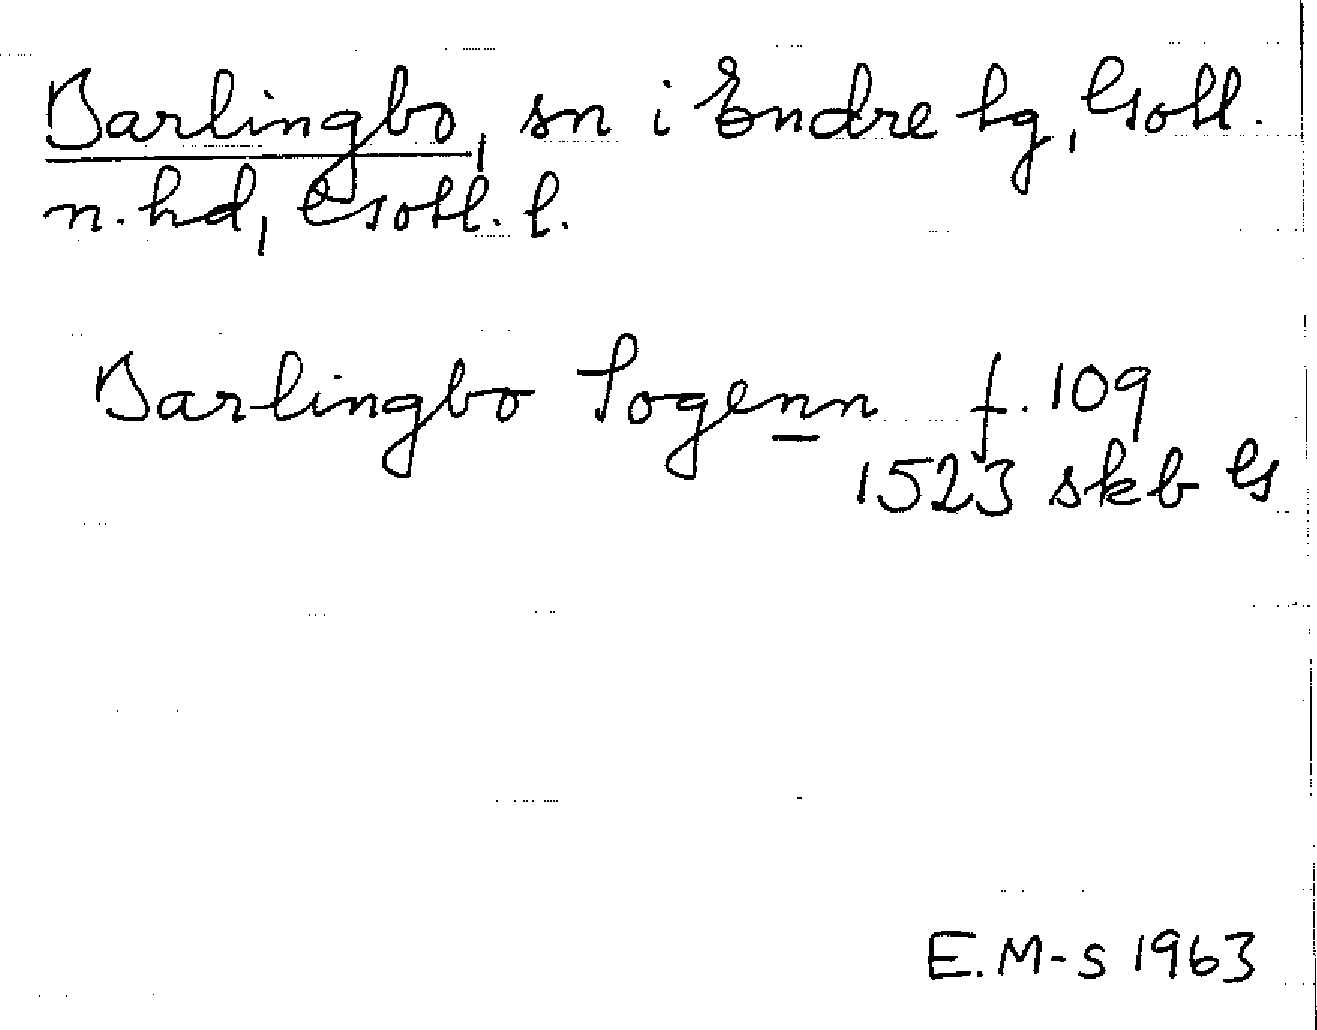 Barlingbo, sn i Endre tg, Gotl.
n. hd, Gotl. l.
Barlingbo Sogenn f. 109
1523 skb G
E.M-s 1963